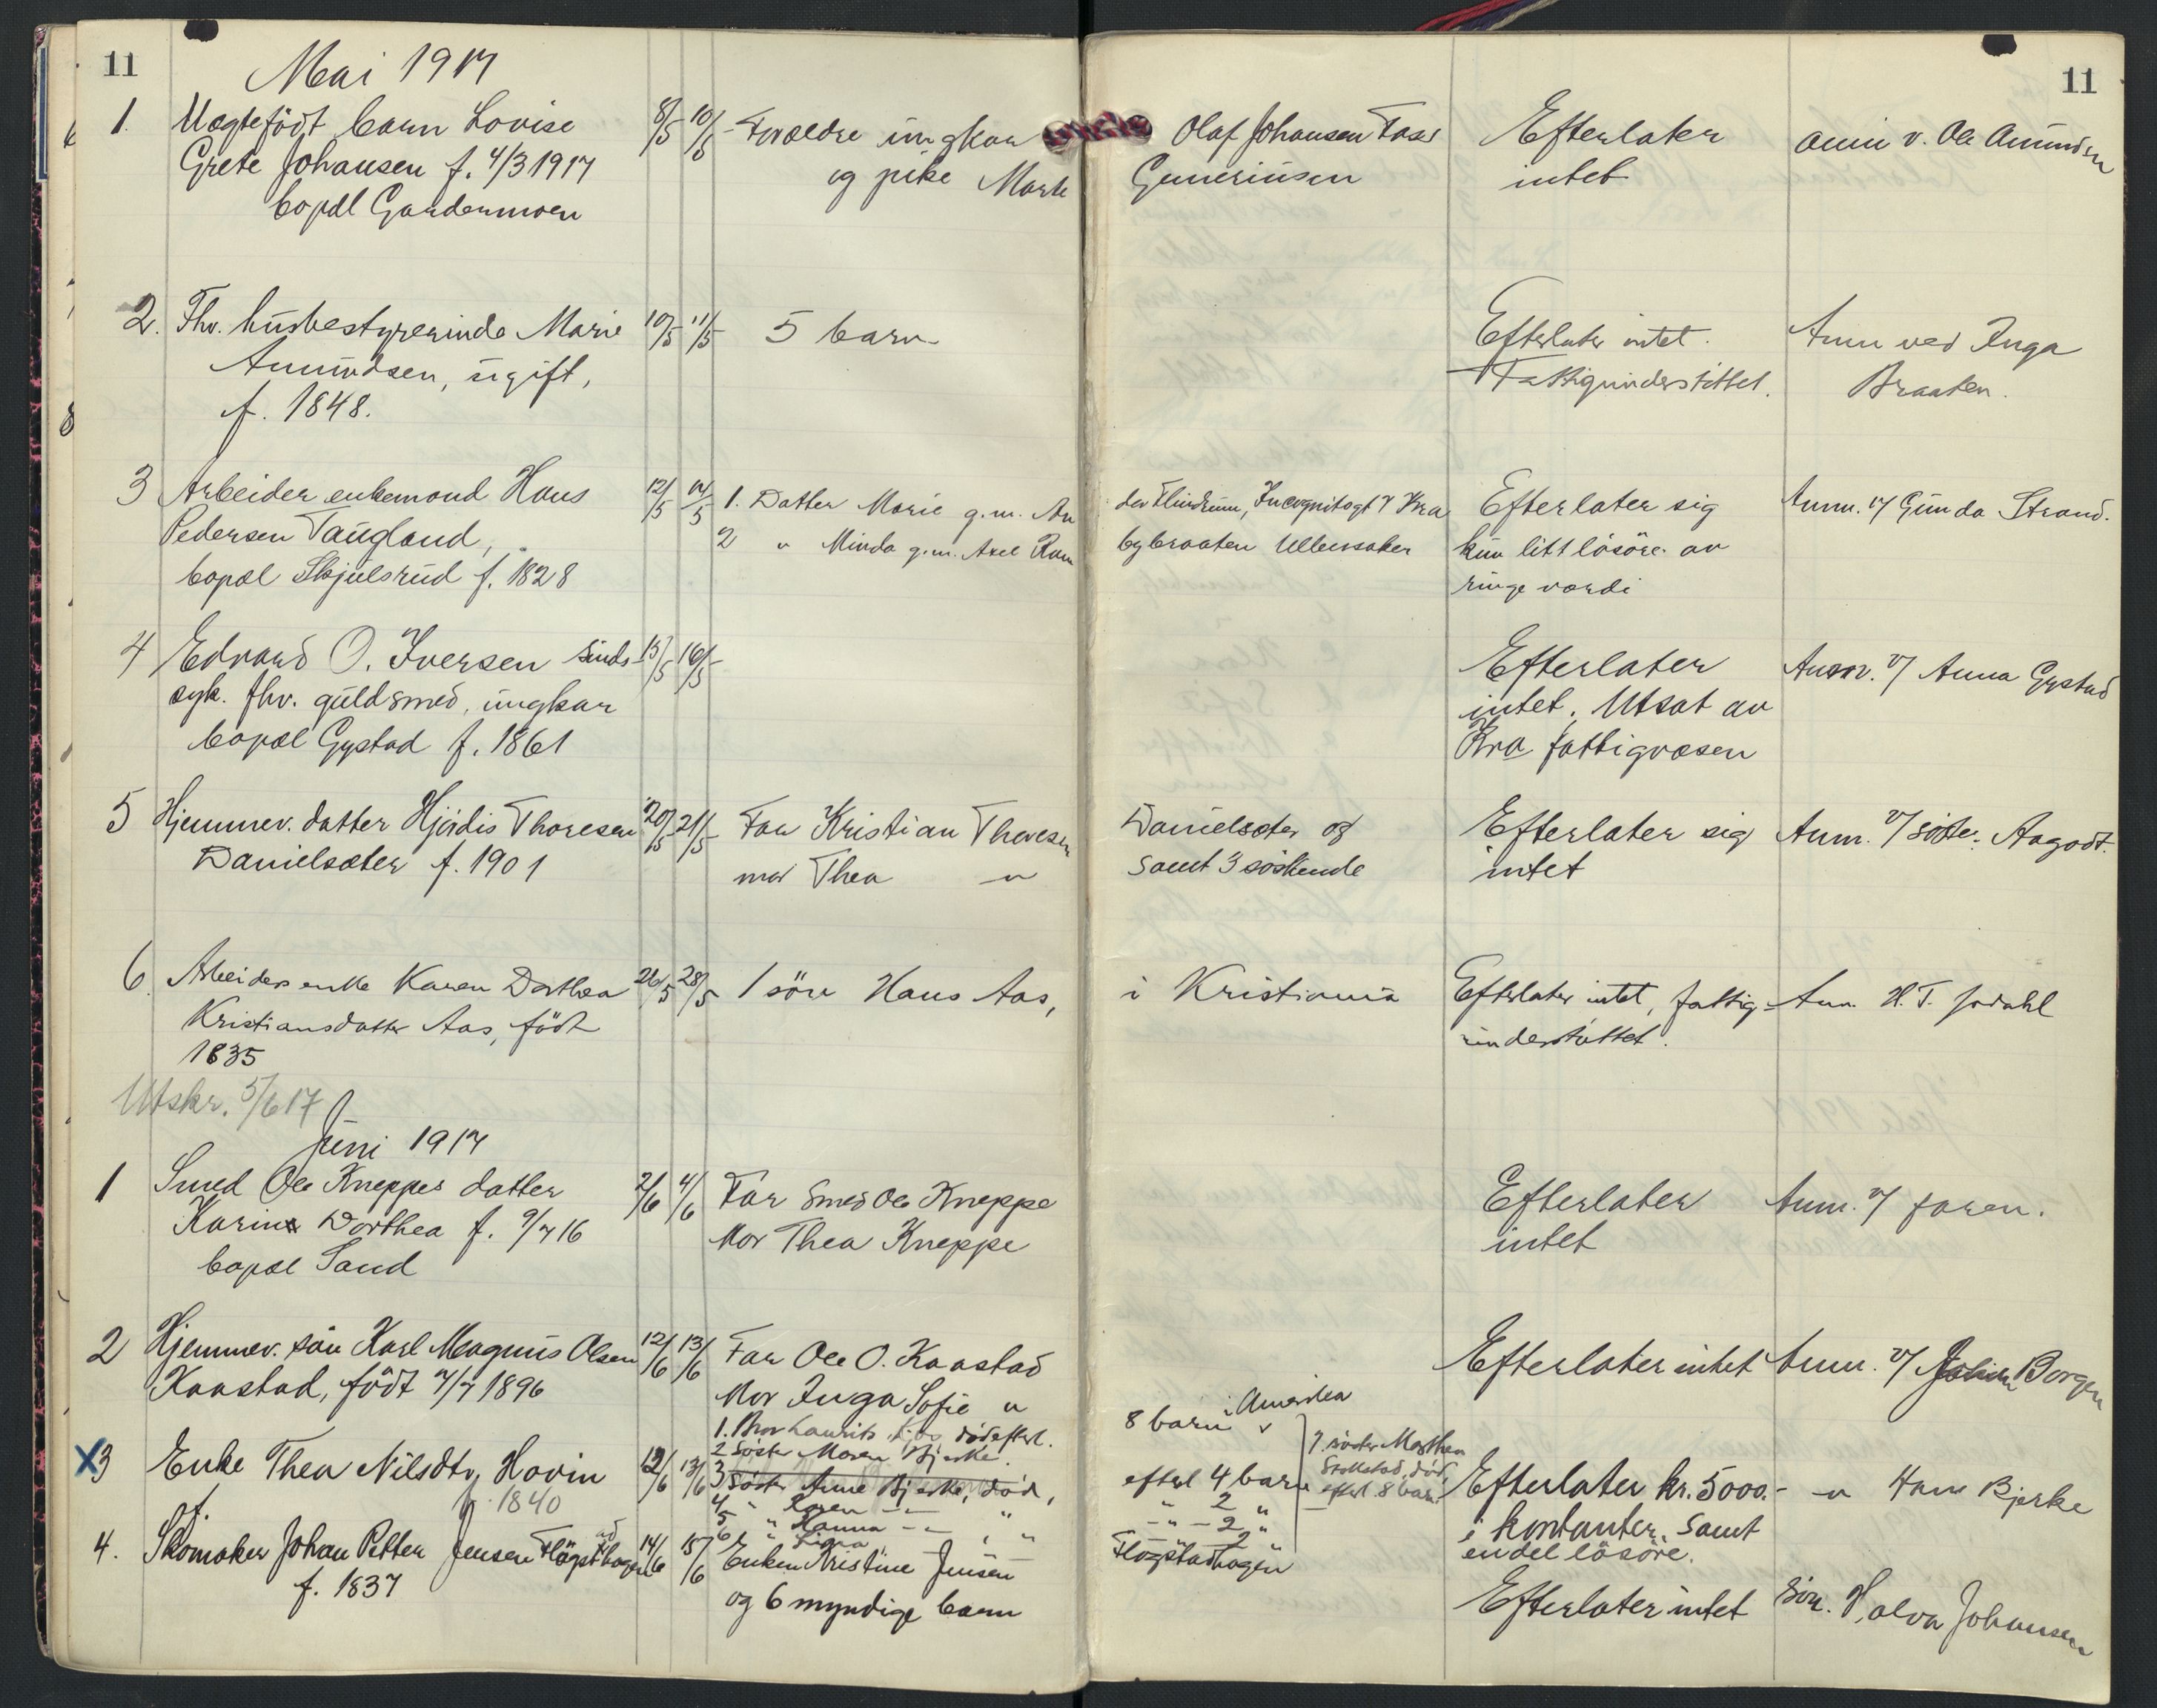 11
Mai 1917
1. Uægtefödt barn Lovise 8/5 10/5 Forældre ungkar Olaf Johansen Efterlater anm v. Ole Amundsen
Grete Johansen f. 4/3 1917 og pike Marte Guneriusen intet
bopæl Gardermoen
11
2. Fhv. husbestyrerinde Marie 10/5 11/5 5 barn Efterlater intet. Anm ved Inga
Amundsen, ugift, Fattigunderstöttet. Braaten.
f. 1848.
3 Arbeider enkemand Hans 12/5 14/5 1. Datter Marie g.m. Efterlater sig Anm. v/ Gunda Strand.
Pedersen Taugland, 2 " Minda g.m. Axel Ullensaker kun litt lösöre av
bopæl Skjulsrud f. 1828 ringe værdi
4 Edvard O. Iversen sinds- 15/5 16/5 Efterlater Anm. v/ Anna Gystad
syk. fhv. guldsmed, ungkar intet. Utsat av
bopæl Gystad f. 1861 Kra fattigvæsen
5 Hjemmev. datter Hjördis Thoresen 20/5 21/5 Far Kristian Thoresen Danielsæter og Efterlater sig Anm. v/ söster Aagodt.
Danielsæter f. 1901 mor Thea " samt 3 söskende intet
6. Arbeiderenke Karen Dorthea 26/5 28/5 1 sön Hans Aas, i Kristiania Efterlater intet, fattig- Anm. H. T. Jordahl
Kristiansdatter Aas, födt understöttet.
1835
Utskr. 5/6 17
Juni 1917
1 Smed Ole Kneppes datter 2/6 4/6 Far Smed Ole Kneppe Efterlater Anm. v/ faren.
Karin Dorthea f. 9/7 16 Mor Thea Kneppe intet
bopæl Sand
2 Hjemmev. sön Karl Magnus Olsen 12/6 13/6 Far Ole O. Kaastad Efterlater intet Anm. v/ Borgen
Kaastad, födt 7/7 1896 Mor Inga Sofie "
1. Bror Laurits död efterl. 8 barn i Amerika
2 Söster Maren Bjerke. 7. söster Marthea
X3 Enke Thea Nilsdtr. Hovin 12/6 13/6 3 Söster Anne Bjerke, död, efterl 4 barn Stokstad, död, efterl. 8 barn Efterlater kr. 5000.- " Hans Bjerke
f. 1840 4 " " 2 " i kontanter, samt
5 " Hanna " - " - 2 " endel lösöre.
6 " " 2 "
4. Skomaker Johan Petter Jensen Flögstadhagen 14/6 15/6 Enken Kristine Jensen Flögstadhagen
f. 1837 og 6 myndige barn Efterlater intet Sön. Halva Johansen